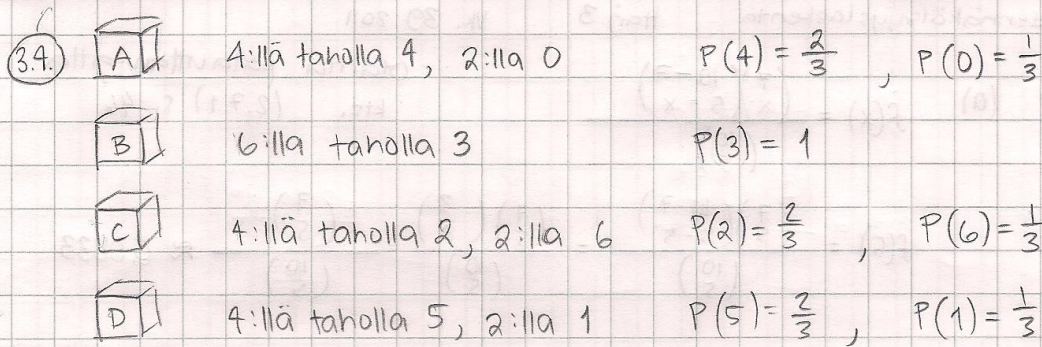 3.4. A 4:llä taholla 4, 2:lla 0 P(4) = 2/3 , P(0) = 1/3
B 6:lla taholla 3 P(3) = 1
C 4:llä taholla 2, 2:lla 6 P(2) = 2/3 , P(6) = 1/3
D 4:llä taholla 5, 2:lla 1 P(5) = 2/3 , P(1) = 1/3